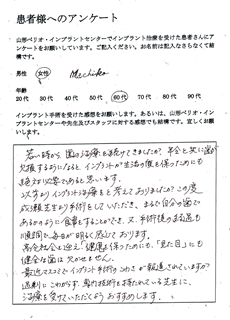 患者様へのアンケート
山形ペリオ・インプラントセンターでインプラント治療を受けた患者さんにア
ンケートをお願いしています。ご記入ください。お名前は記入なさらなくて結
構です。
男性 女性 Michiko
年齢
20代 30代 40代 50代 60代 70代 80代 90代
インプラント手術を受けた感想をお願いします。あるいは、山形ペリオ・イン
プラントセンターや先生及びスタッフに対する感想でも結構です。宜しくお願い
します。
若い時から歯の治療を続けてきましたが、年令と共に歯が
欠損するようになるとインプラントが生活の質を保つためにも
絶対必要であると思います。
以前よりインプラント治療をと考えておりましたが この度
成瀬先生より手術をしていただき、まるで自分の歯で
あるかのように食事をすることができ、又、手術後の経過も
順調で毎日が明るく感じております。
高令社会を迎え、健康を保つためにも、「見た目」にも
健全な歯は欠かせません。
最近マスコミでインプラント手術のこわさが報道されていますが
過剰にこわがらず、専門技術を持たれている先生に、
治療を受けていただくようおすすめします。